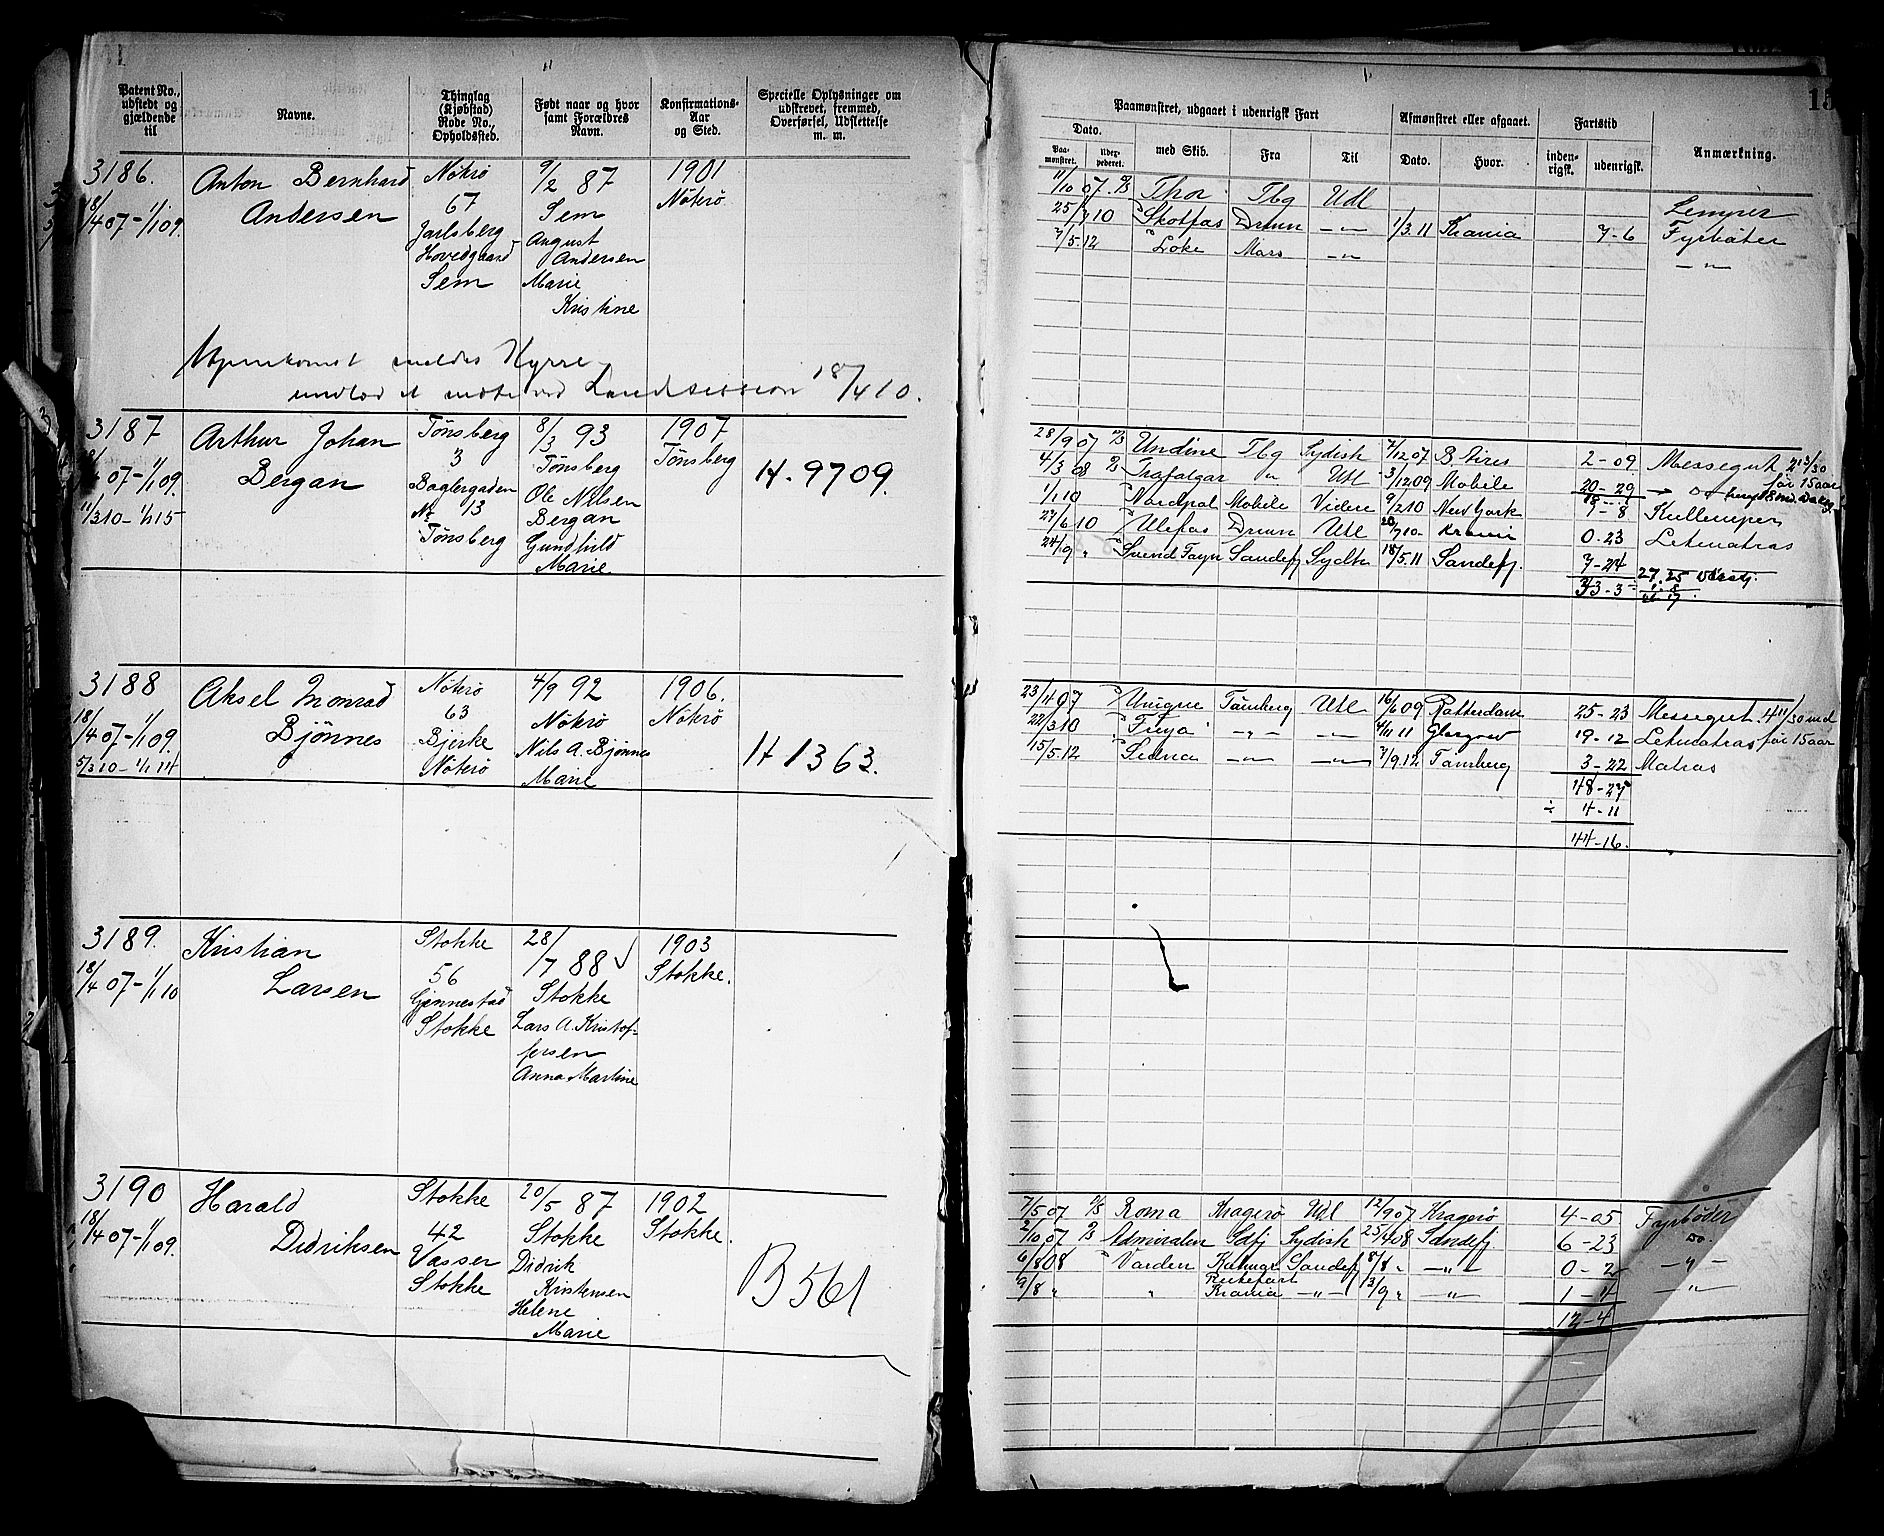 Patent No., udstedt og gjældende til
Navne.
Thinglag (Kjøbstad) Rode No., Opholdssted.
Født naar og hvor samt Forældres Navn.
Konfirmations-Aar og Sted.
Specielle Oplysninger om udskrevet, fremmed, Overførsel, Udslettelse m. m.
3186.
18/4 07-1/1 09.
Anton Bernhard
Andersen
Nøtrø
67
Jarlsberg
Hovedgaard
Sem
9/2 87
Sem
August
Andersen
Marie
Kristine
1901
Nøtrø
18/4 10.
3187
18/4 07-1/1 09.
11/3 10-1/1 15
Arthur Johan
Bergan
Tønsberg
3
Baglergaden
No 13
Tønsberg
8/3 93
Tønsberg
Ole Nilsen
Bergan
Gundhild
Marie
1907
Tønsberg
H. 9709.
3188
18/4 07-1/1 09.
5/3 10-1/1 14
Aksel Monrad
Bjønnes
Nøtrø
63
Bjerke
Nøtrø
4/9 92
Nøtrø
Nils A. Bjønnes
Marie
1906.
Nøtrø
H 1363.
3189.
18/4 07-1/1 10
Kristian
Larsen
Stokke
56
Gjennestad
Stokke
28/7 88
Stokke
Lars A. Kristof-
fersen
Anna Martine
1903
Stokke.
3190
18/4 07-1/1 09.
Harald
Didriksen
Stokke
42
Vasser
Stokke
20/5 87
Stokke
Didrik
Kristensen
Helene
Marie
1902
Stokke.
B 561
13
Paamønstret, udgaaet i udenrigsk Fart
Afmønstret eller afgaaet.
Fartstid
Anmærkning.
Dato.
Paa-mønstret.
Uder-pederet.
med Skib.
Fra
Til
Dato.
Hvor.
inden-rigsk.
udenrigsk.
11/10 07. Thor Tbg Udl Lemper
Skotfos Drmn -"- 1/3 11 Krania 7-6 Fyrbøter
7/5 12 " Loke Moss -"- -"-
28/9 07 Undine Tbg Sydish 7/12 07 B. Aires 2-09 Messegut
4/3 08 Trafalgar " Utl 3/12 09 Mobile 20-29 før 15 aar
1/1 10 Nordpol Mobile Videre 9/2 10 New York 7-8 Kullemper
27/6 10 Ulefos Drmn Utl 20/7 10 Krania 0.23 Letmatros
24/9 " Svend Foyn Sandefj Sydh 18/5 11 Sandefj. 7-24
33-3
23/4 07 Unique Tønsberg Utl 16/6 09 Rotterdam 25-23 Messegut
22/3 10 Freya -"- -"- 4/11 11 Glasgow 19-12 Letmatros før 15 aar
15/5 12 Sedna -"- -"- 7/9 12 Tønsberg 3-22 Matros
48-27
÷ 4-11
44-16.
7/5 07 Roma Kragerø Udl 12/9 07 Kragerø 4-05 Fyrbøder
2/10 07 Admiralen Sdfj Sydish 25/4 08 Sandefj 6-23 Do.
6/8 08 " Varden Kalmar Sandefj 8/8 " -"- 0-2 -"-
9/8 " " Krania -"- 3/9 " -"- 1-4 -"-
12-4